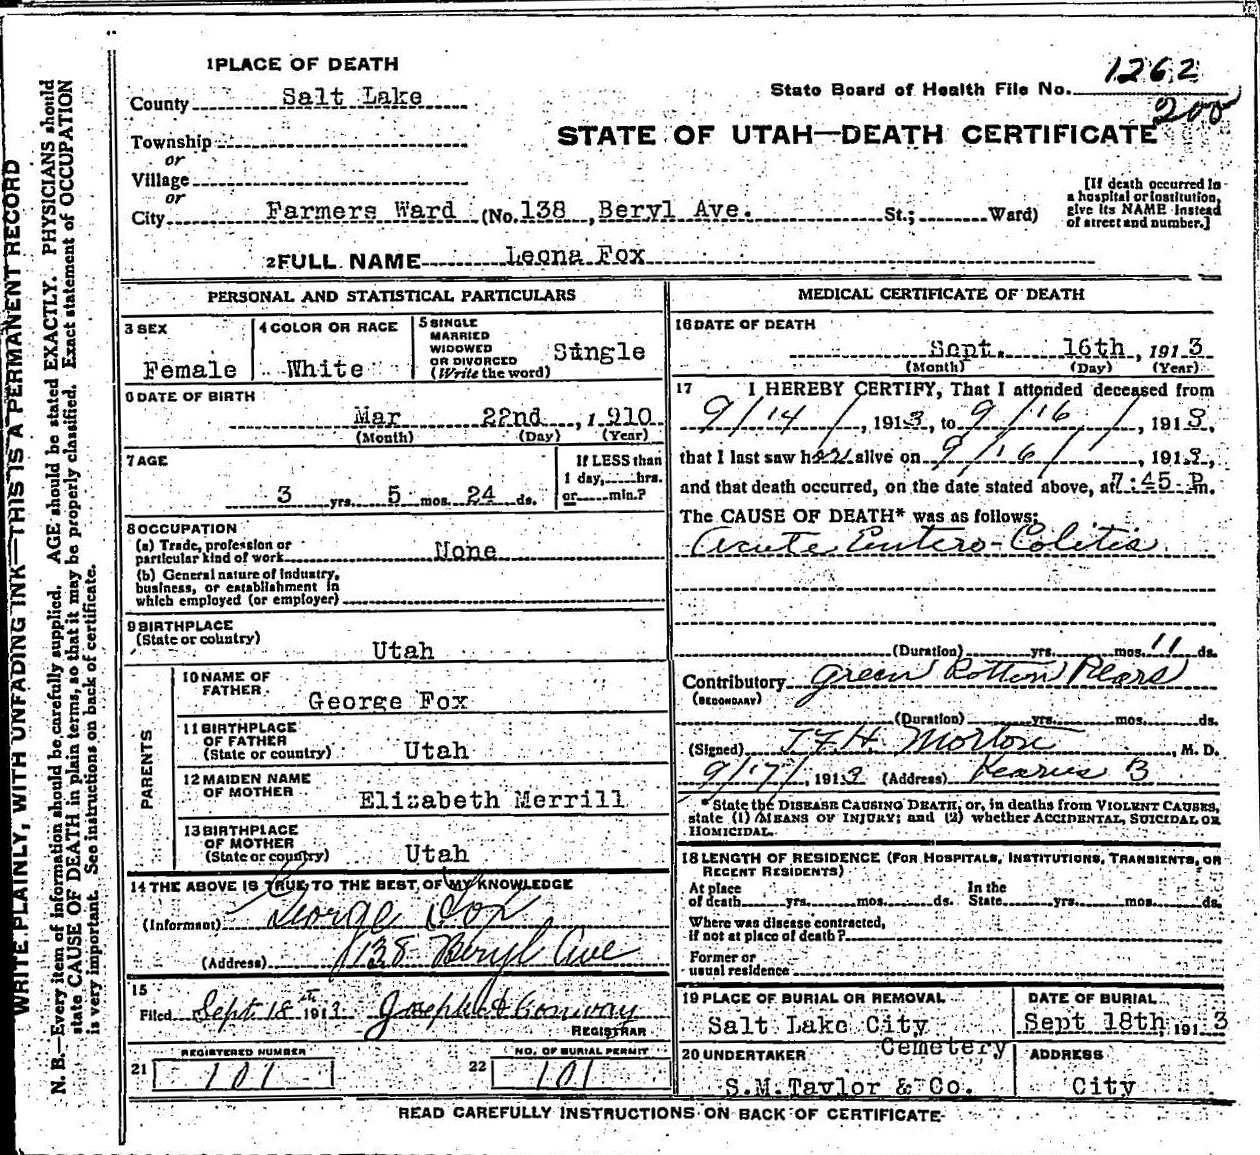 1 PLACE OF DEATH
County Salt Lake
Township
or
Village
or
City Farmers Ward (No. 138, Beryl Ave. St.; Ward)
State Board of Health File No. 1262
200
STATE OF UTAH—DEATH CERTIFICATE
[If death occurred in
a hospital or institution,
give its NAME instead
of street and number.]
2 FULL NAME Leona Fox
PERSONAL AND STATISTICAL PARTICULARS
3 SEX
Female
4 COLOR OR RACE
White
5 SINGLE
MARRIED
WIDOWED
OR DIVORCED
(Write the word)
Single
6 DATE OF BIRTH
Mar 22nd, 1 910
(Month) (Day) (Year)
7 AGE
3 yrs. 5 mos. 24 ds.
If LESS than
1 day, hrs.
or min.?
8 OCCUPATION
(a) Trade, profession or
particular kind of work None
(b) General nature of industry,
business, or establishment in
which employed (or employer)
9 BIRTHPLACE
(State or country)
Utah
PARENTS
10 NAME OF
FATHER
George Fox
11 BIRTHPLACE
OF FATHER
(State or country) Utah
12 MAIDEN NAME
OF MOTHER
Elizabeth Merrill
13 BIRTHPLACE
OF MOTHER
(State or country) Utah
14 THE ABOVE IS TRUE TO THE BEST OF MY KNOWLEDGE
(Informant) George Fox
(Address) 138 Beryl Ave
15
Filed Sept 18th 1913 Joseph Conway
REGISTRAR
REGISTERED NUMBER
21 101
NO. OF BURIAL PERMIT
22 101
MEDICAL CERTIFICATE OF DEATH
16 DATE OF DEATH
Sept. 16th, 1913
(Month) (Day) (Year)
17 I HEREBY CERTIFY, That I attended deceased from
9/14/, 1913, to 9/16/, 1913,
that I last saw her alive on 9/16/, 1913,
and that death occurred, on the date stated above, at 7:45 P.m.
The CAUSE OF DEATH* was as follows:
Acute Entero-Colitis
(Duration) yrs. mos. 11 ds.
Contributory Green Rotton Pears
(SECONDARY)
(Duration) yrs. mos. ds.
(Signed) J.F.H. Morton, M. D.
9/17/, 1913 (Address) Kearns B
*State the DISEASE CAUSING DEATH, or, in deaths from VIOLENT CAUSES,
state (1) MEANS OF INJURY; and (2) whether ACCIDENTAL, SUICIDAL OR
HOMICIDAL.
18 LENGTH OF RESIDENCE (FOR HOSPITALS, INSTITUTIONS, TRANSIENTS, OR
RECENT RESIDENTS)
At place
of death yrs. mos. ds.
In the
State yrs. mos. ds.
Where was disease contracted,
if not at place of death?
Former or
usual residence
19 PLACE OF BURIAL OR REMOVAL
Salt Lake City
Cemetery
DATE OF BURIAL
Sept 18th, 1913
20 UNDERTAKER
S.M. Taylor & Co.
ADDRESS
City
READ CAREFULLY INSTRUCTIONS ON BACK OF CERTIFICATE
WRITE PLAINLY, WITH UNFADING INK—THIS IS A PERMANENT RECORD
N. B.—Every item of information should be carefully supplied. AGE should be stated EXACTLY. PHYSICIANS should
state CAUSE OF DEATH in plain terms, so that it may be properly classified. Exact statement of OCCUPATION
is very important. See instructions on back of certificate.